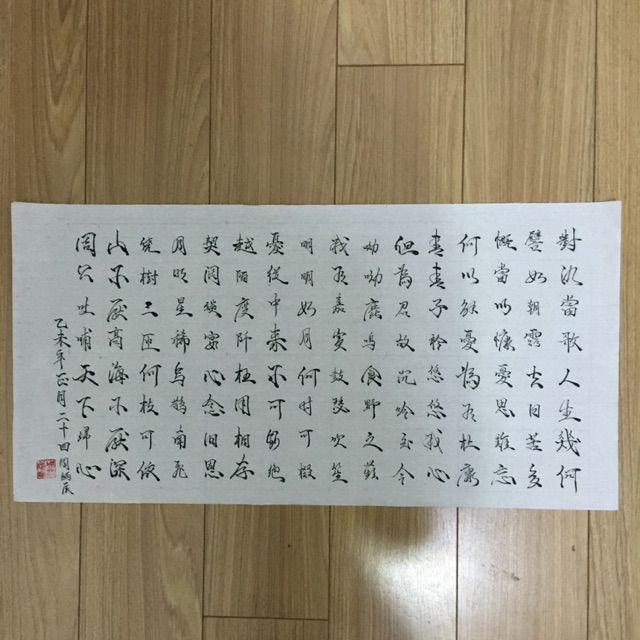 對酒當歌人生幾何
譬如朝露去日苦多
慨當以慷憂思難忘
何以解憂惟有杜康
青青子衿悠悠我心
但為君故沉吟至今
呦呦鹿鳴食野之蘋
我有嘉賓鼓瑟吹笙
明明如月何时可掇
憂從中來不可斷絕
越陌度阡枉用相存
契闊談宴心念旧恩
月明星稀烏鵲南飛
繞樹三匝何枝可依
山不厭高海不厭深
周公吐哺天下歸心
乙未年正月二十四